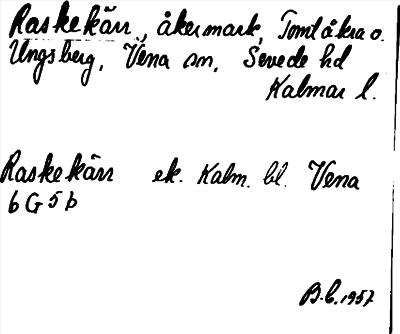 Raskekärr, åkermark, Tomtåkra o.
Ungsberg, Vena sn, Sevede hd
Kalmar l.
Raskekärr ek. Kalm. bl. Vena
6 G 5 b
B.C. 1957